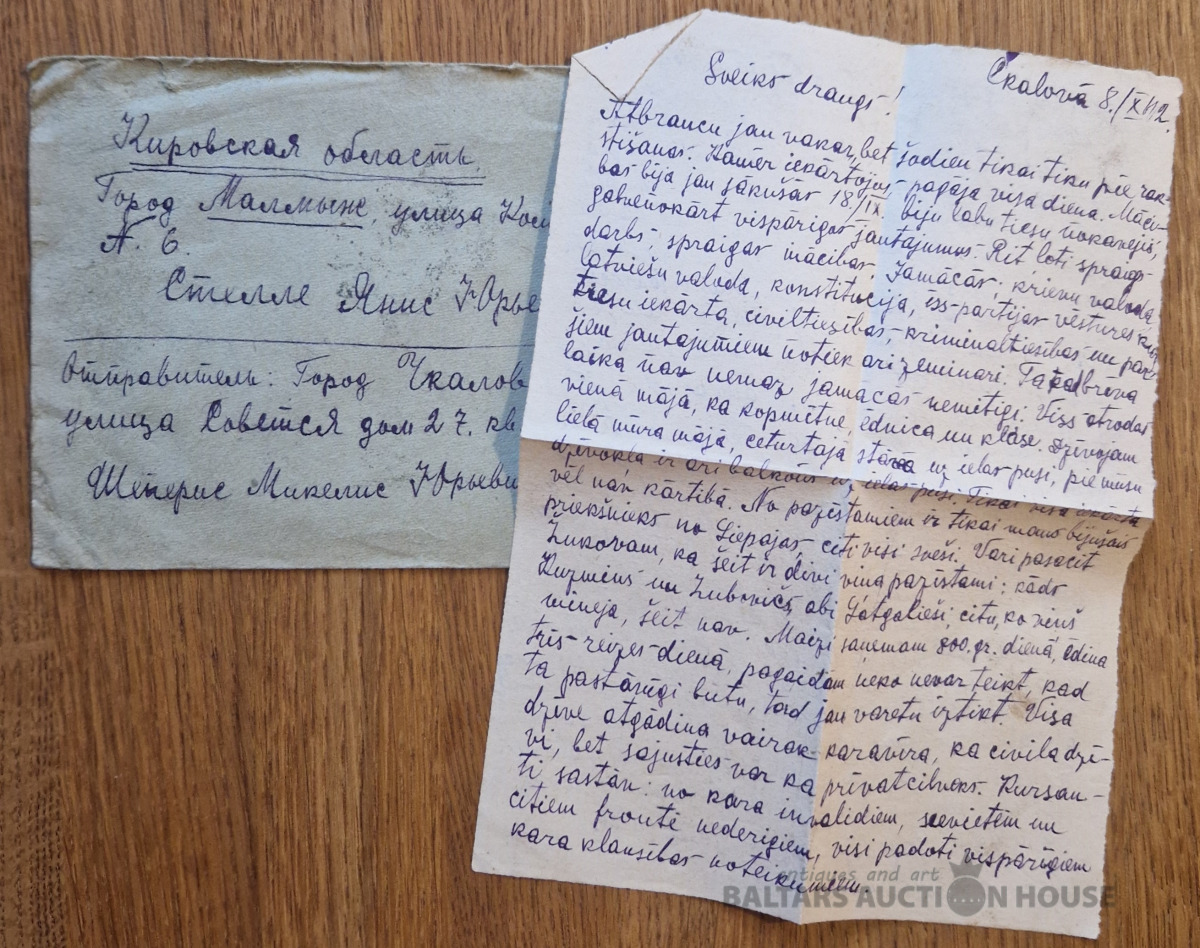 Кировская область.
Город Малмыж, улица
N. 6.
Стелле Янис Юрье
Отправитель: Город Чкалов
улица Совется дом 27. кв
Шеперис Микелис Юрьеви
Čkalovā 8./X 42.
Sveiks draugs!
Atbraucu jau vakar, bet šodien tikai tiku pie rak-
stīšanas. Kamēr iekārtojos pagāja visa diena. Mācī-
bas bija jau sākušās 18./IX. biju labu tiesu nokavējis,
galvenokārt vispārīgos jautājumus. Rit ļoti spraigs
darbs, spraigas mācības. Jāmācās: krievu valoda,
latviešu valoda, konstitūcija, partijas vēstures
tiesu iekārta, civiltiesības, krimināltiesības un par
šiem jautājumiem notiek arī zeminari. Tā kā brīva
laika nav nemaz jāmācās nemitīgi. Viss atrodas
vienā mājā, kā kopmītne, ēdnīca un klase. Dzīvojam
lielā mūra mājā, ceturtajā stāvā uz ielas pusi, pie mūsu
dzīvokļa ir arī balkons uz ielas pusi. Tikai visa iekārta
vēl nav kārtībā. No pazīstamiem ir tikai mans bijušais
priekšnieks no Liepājas, citi visi sveši. Vari pasacīt
Žukovam, ka šeit ir divi viņa pazīstami: kāds
Kuzmins un Zubovičs, abi Latgalieši, citu, ko viņš
mineja, šeit nav. Maizi saņemam 800. gr. dienā, ēdina
trīs reizes dienā, pagaidām neko nevar teikt, kad
tā pastāvīgi būtu, tad jau varētu iztikt. Visa
dzīve atgādina vairāk karavīra, kā civilā dzī-
vi, bet sajusties var kā privātcilvēks. Kursan-
ti sastāv: no kara invalidiem, sievietēm un
citiem frontē nederīgiem, visi padoti vispārīgiem
kara klausības noteikumiem.
antiques and art
BALTARS AUCTION HOUSE